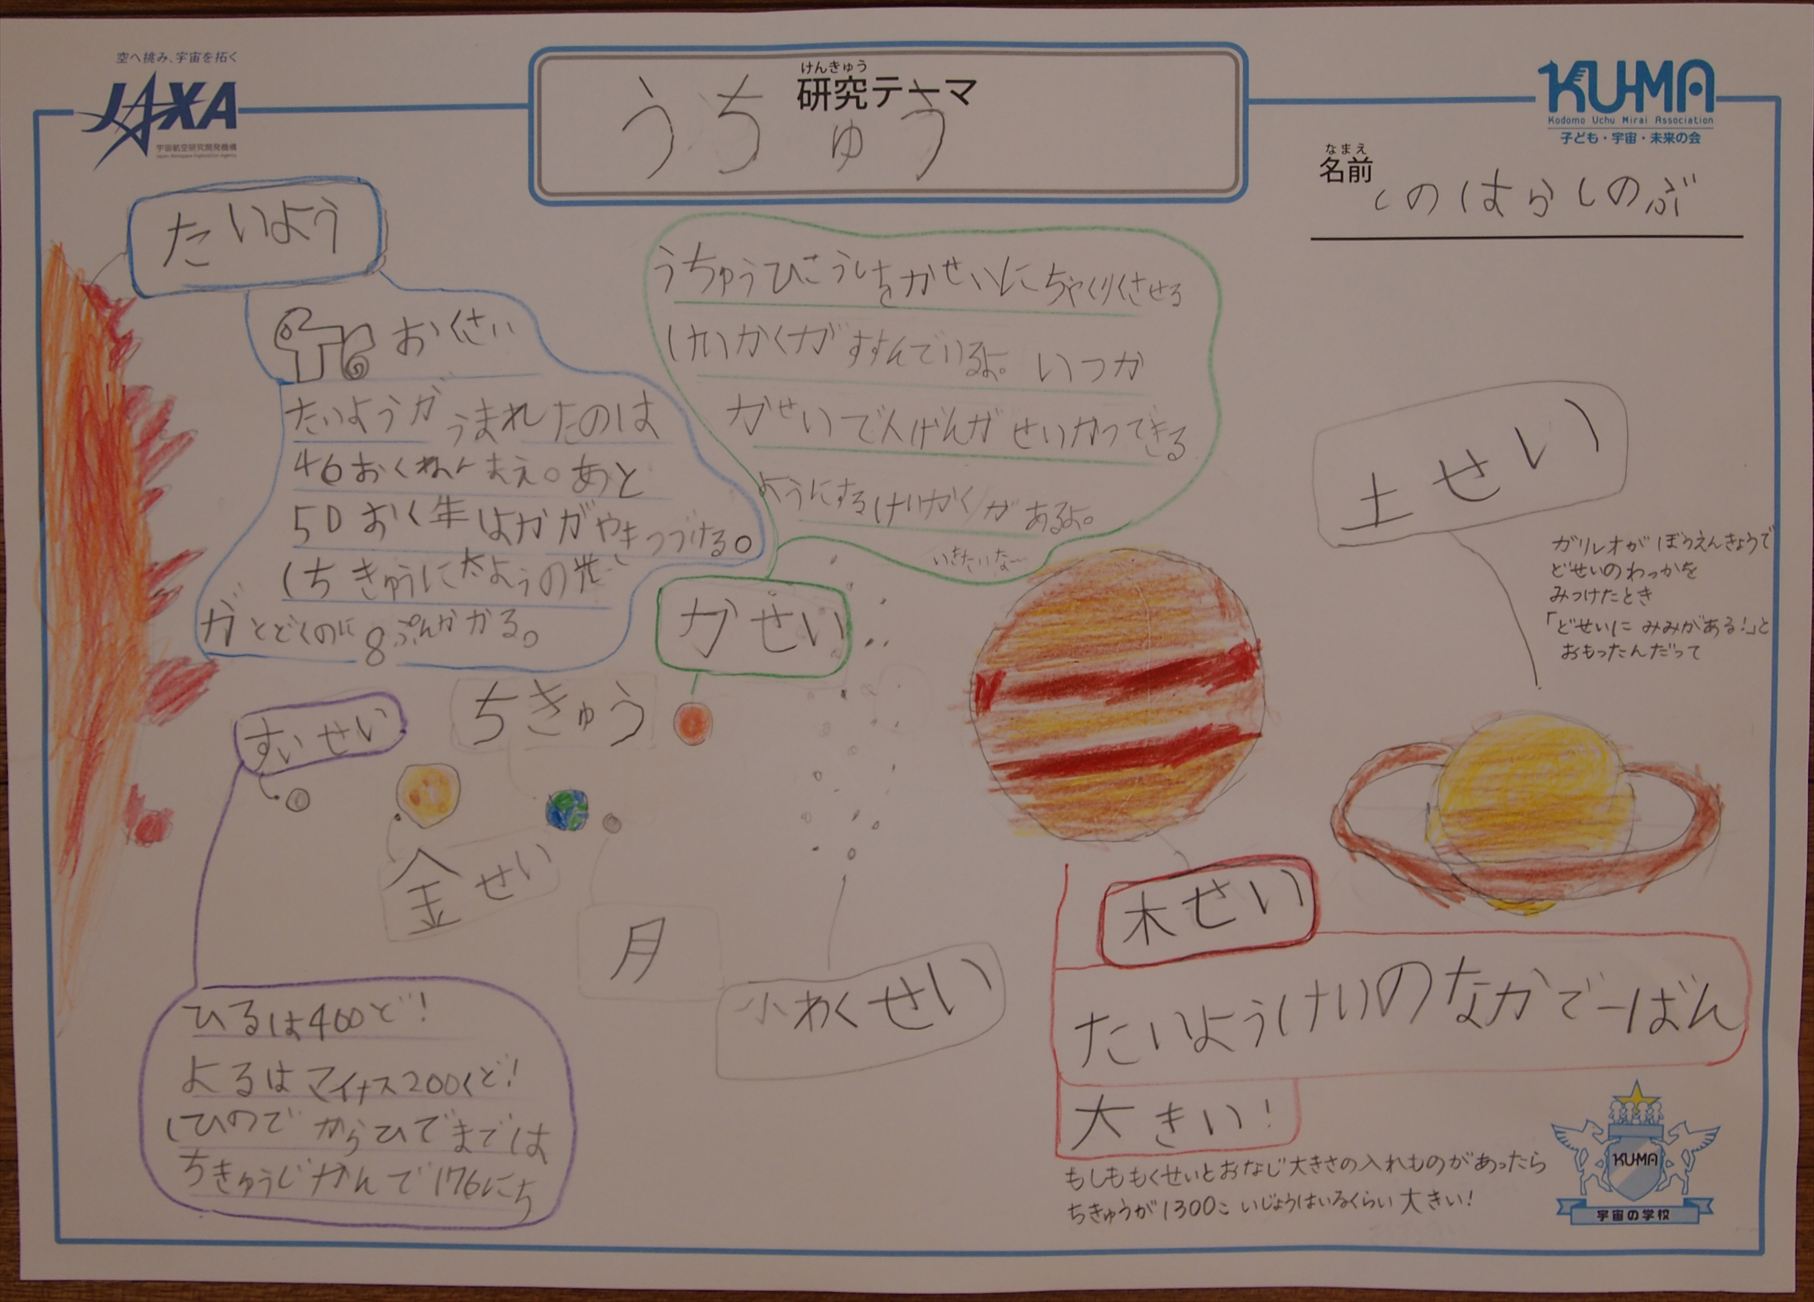 空へ挑み、宇宙を拓く
JAXA
宇宙航空研究開発機構
Japan Aerospace Exploration Agency
けんきゅう
研究テーマ
うちゅう
KU-MA
Kodomo Uchu Mirai Association
子ども・宇宙・未来の会
なまえ
名前
しのはらしのぶ
たいよう
46おくさい
たいようが うまれたのは
46おくねんまえ。あと
50おく年はかがやきつづける。
ちきゅうに太ようの光
がとどくのに8ぷんかかる。
うちゅうひこうしをかせいにちゃくりくさせる
けいかくがすすんでいるよ。いつか
かせいでんげんがせいかつできる
ようにするけいかくがあるよ。
いきたいなー
かせい
土せい
ガリレオがぼうえんきょうで
どせいのわっかを
みつけたとき
「どせいに みみがある!」と
おもったんだって
すいせい
ちきゅう
金せい
月
小わくせい
木せい
たいようけいのなかで一ばん
大きい!
もしももくせいとおなじ大きさの入れものがあったら
ちきゅうが1300こ いじょうはいるくらい 大きい!
ひるは400ど!
よるはマイナス200くど!
ひのでからひのでまでは
ちきゅうじかんで176にち
KU-MA
宇宙の学校